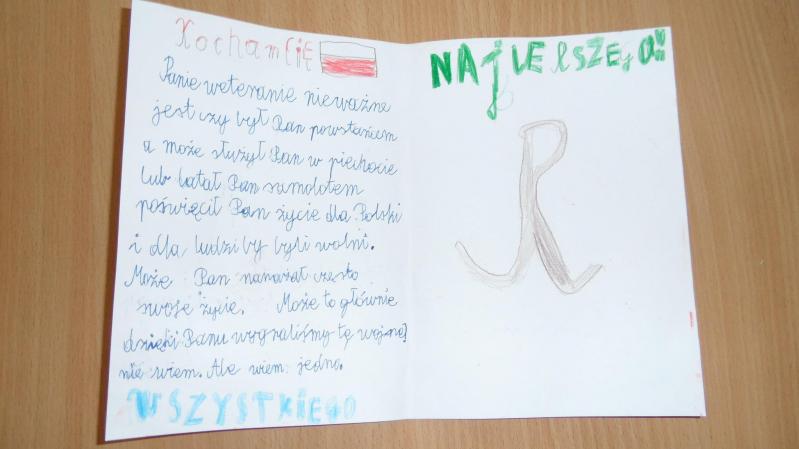 Kocham Cię
Panie weteranie nieważne
jest czy był Pan powstańcem
a może służył Pan w piechocie
lub latał Pan samolotem
poświęcił Pan życie dla Polski
i dla ludzi by byli wolni.
Może Pan narażał często
swoje życie. Może to głównie
dzięki Panu wygraliśmy tę wojnę
nie wiem. Ale wiem jedno.
WSZYSTKIEGO
NAjLEPSZEgO!!